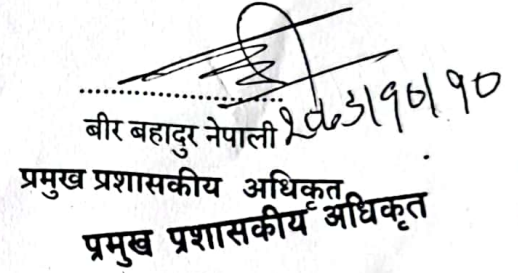 बीर बहादुर नेपाली २०८३/१०/१०
प्रमुख प्रशासकीय अधिकृत
प्रमुख प्रशासकीय अधिकृत